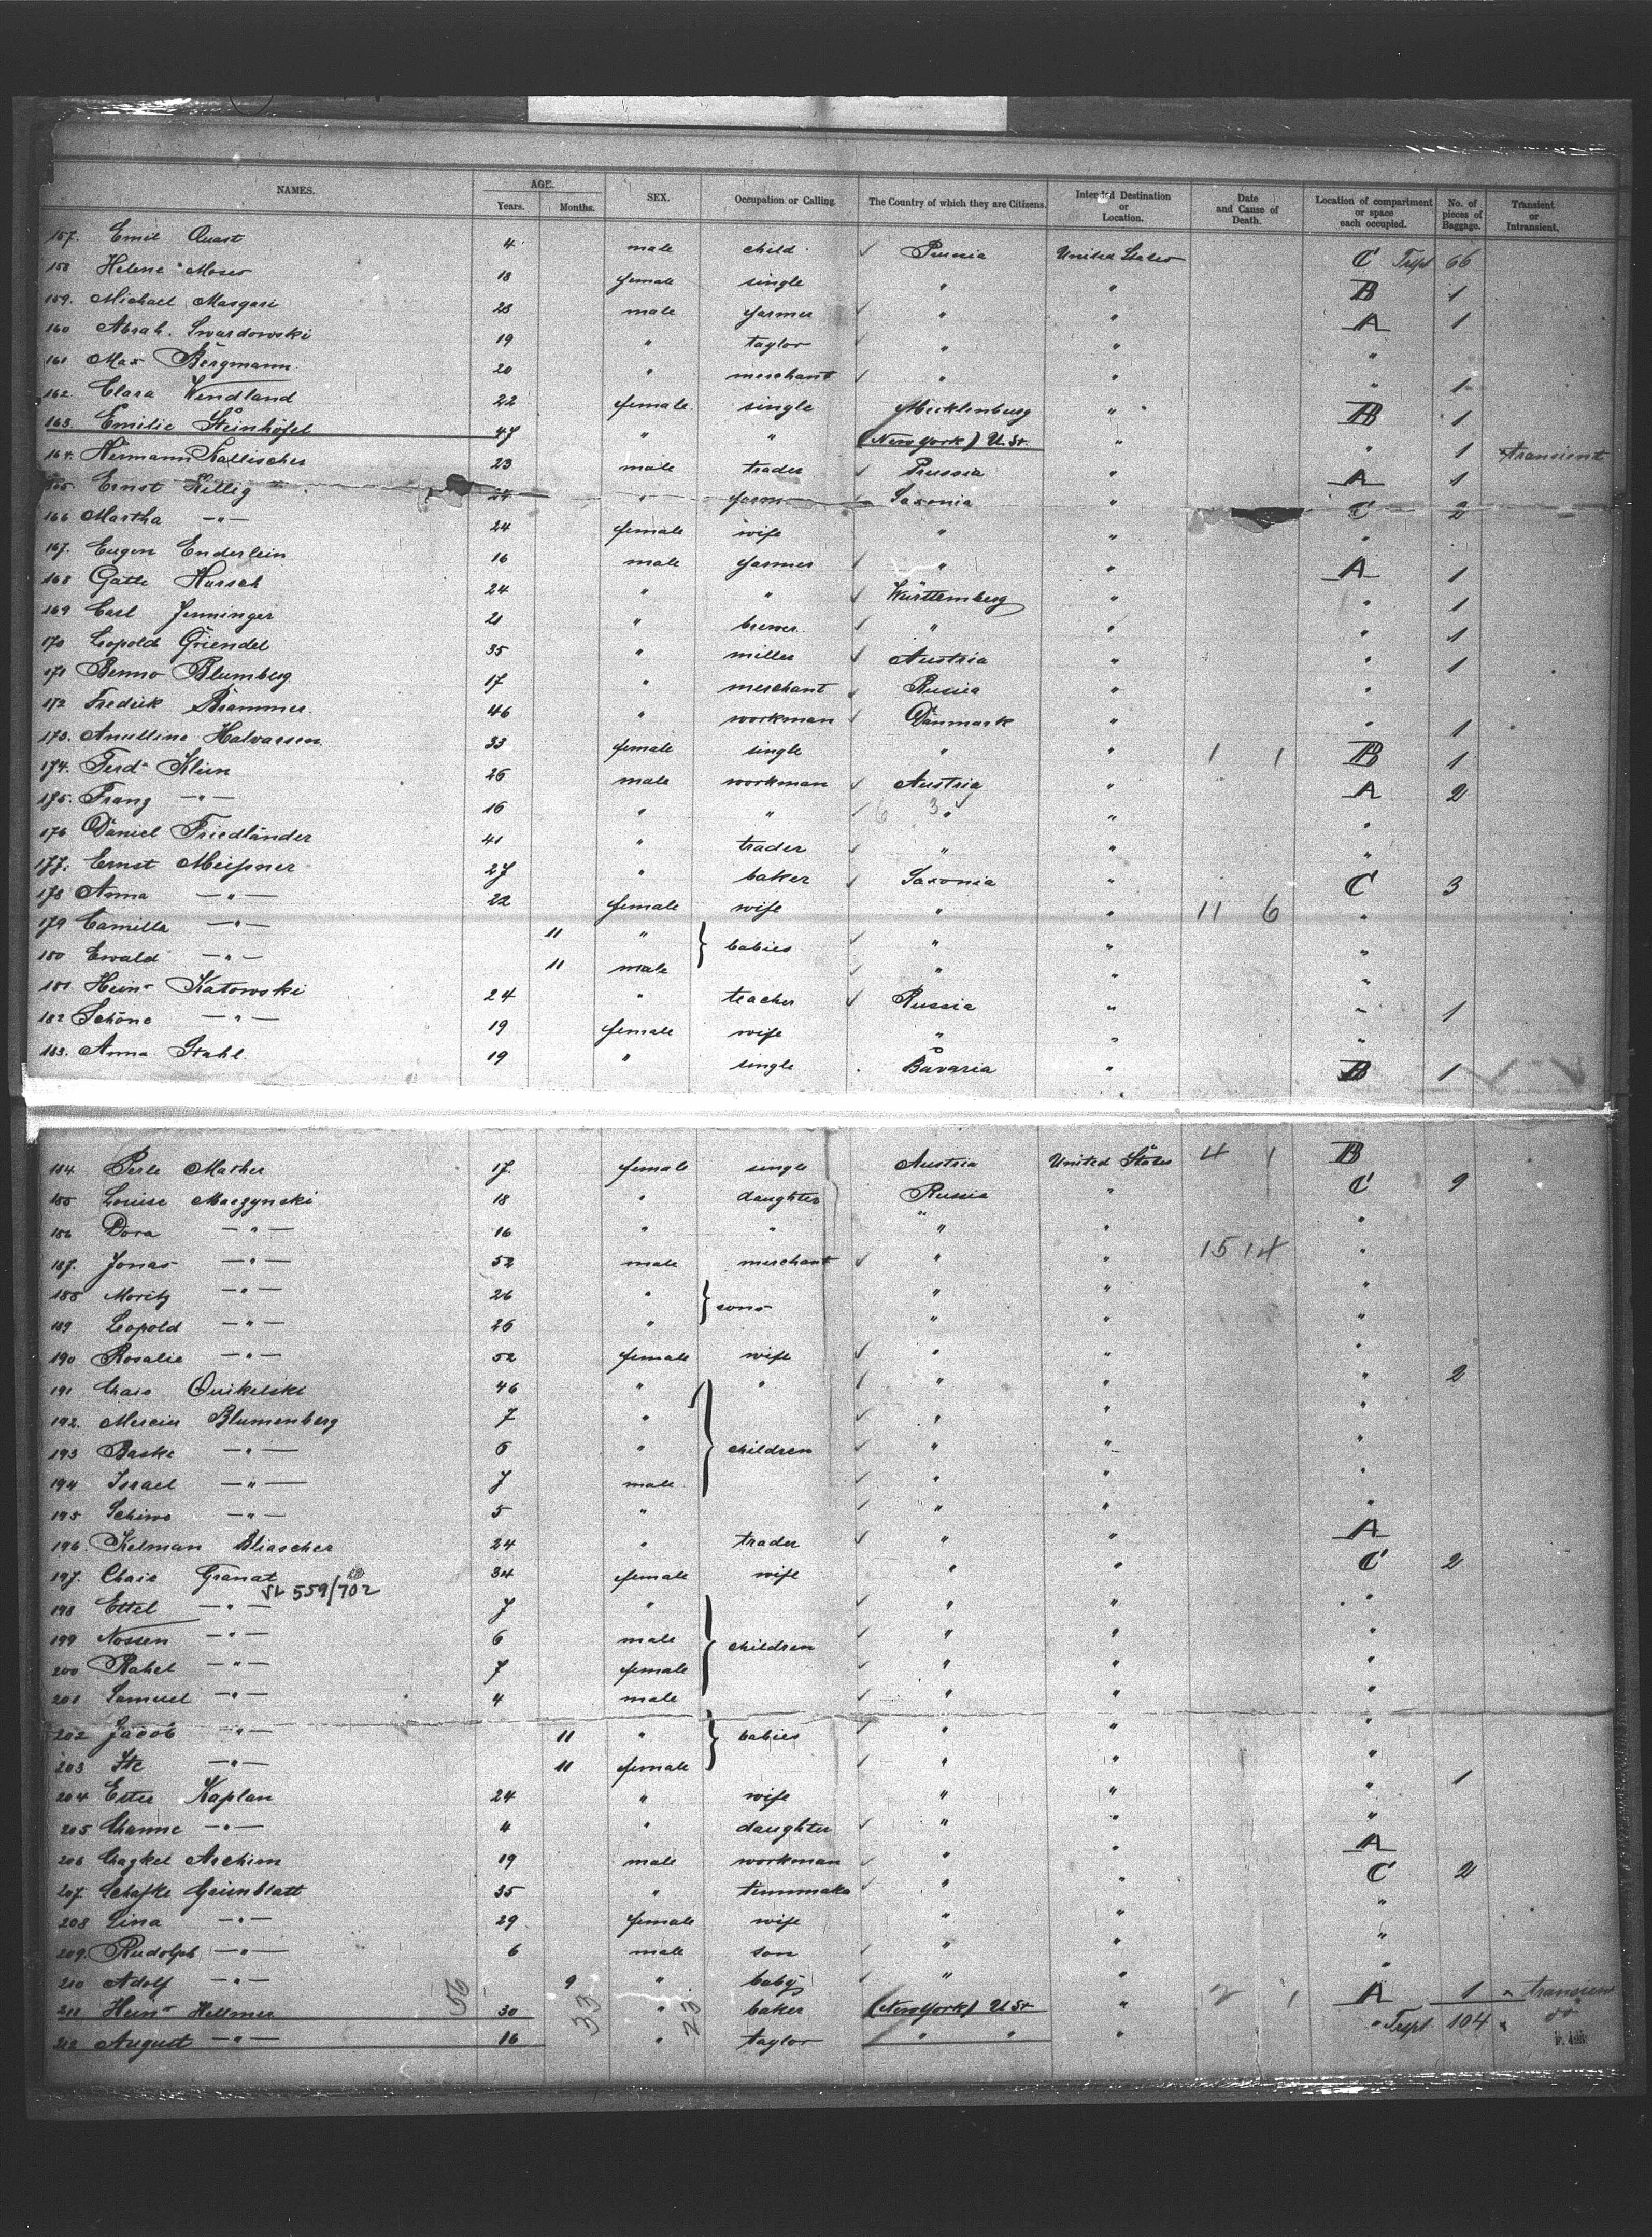 NAMES. AGE. Years. Months. SEX. Occupation or Calling The Country of which they are Citizens. Intended Destination or Location. Date and Cause of Death. Location of compartment or space each occupied. No. of pieces of Baggage. Transient or Intransient.
157. Emil Quast 4 male child ✓ Prussia United States C Trspt 66
158 Helene Moser 18 female single " " B 1
159. Michael Margari 28 male farmer ✓ " " A 1
160 Abrah. Swardowski 19 " taylor ✓ " " "
161 Max Bergmann 20 " merchant ✓ " " " 1
162. Clara Wendland 22 female single Mecklenburg " B 1
163. Emilie Steinhöfel 47 " " (New York) U. St. " " 1 transient
164. Hermann Kallischer 23 male trader ✓ Prussia " A 1
165. Ernst Zillig 24 " farm Saxonia " C 2
166 Martha —"— 24 female wife " " "
167. Eugen Enderlein 16 male farmer ✓ " " A 1
168 Gattl Hursch 24 " " ✓ Württemberg " " 1
169 Carl Jenninger 21 " brewer ✓ " " " 1
170 Leopold Griendel 35 " miller ✓ Austria " " 1
171 Benno Blumberg 17 " merchant ✓ Russia " "
172 Fredrik Brammer 46 " workman ✓ Dänmark " " 1
173. Anulline Halvarsen 33 female single " " 1 1 B 1
174. Ferd Klein 26 male workman ✓ Austria " A 2
175. Franz —"— 16 " " ✓ 6 3 " " "
176 Daniel Friedländer 41 " trader ✓ " " "
177. Ernst Meißner 27 " baker ✓ Saxonia " C 3
178 Anna —"— 22 female wife " " 11 6 "
179 Camilla —"— 11 " } babies ✓ " " "
180 Ewald —"— 11 male ✓ " " "
181 Hein Katowski 24 " teacher ✓ Russia " " 1
182 Schöne —"— 19 female wife " " "
183. Anna Stahl 19 " single Bavaria " B 1
184 Perle Mather 17. female single Austria United States 4 1 B
185 Louise Moczynski 18 " daughter Russia " C 9
186 Dora —"— 16 " " " " "
187. Jonas —"— 52 male merchant ✓ " " 15 14 "
188 Moritz —"— 26 " } sons " " "
189 Leopold —"— 26 " " " "
190 Rosalie —"— 52 female wife ✓ " " "
191 Chaie Quikelski 46 " " ✓ " " " 2
192. Mercier Blumenberg 7 " } children ✓ " " "
193 Baske —"— 6 " ✓ " " "
194 Israel —"— 7 male ✓ " " "
195 Schiwe —"— 5 " ✓ " " "
196. Kelman Bliascher 24 " trader ✓ " " A
197. Chaie Granat 34 female wife " " C 2
VL 559/702
198 Ettel —"— 7 " } children ✓ " " "
199 Nossen —"— 6 male ✓ " " "
200 Rahel —"— 7 female ✓ " " "
201 Samuel —"— 4 male ✓ " " "
202 Jacob —"— 11 " } babies ✓ " " "
203 Ite —"— 11 female ✓ " " "
204 Ester Kaplan 24 " wife " " " 1
205 Channe —"— 4 " daughter ✓ " " "
206 Chazkel Archim 19 male workman ✓ " " A
207. Schafke Grünblatt 35 " ✓ " " C 2
208 Lina —"— 29 female wife " " "
209. Rudolph —"— 6 male son ✓ " " "
210 Adolf —"— 9 " baby ✓ " " "
211 Hein Hellmer 56 30 33 " 23 baker (New York) U St " 2 1 A 1 transien
212 August —"— 16 " taylor " " " " Trspt. 104 do